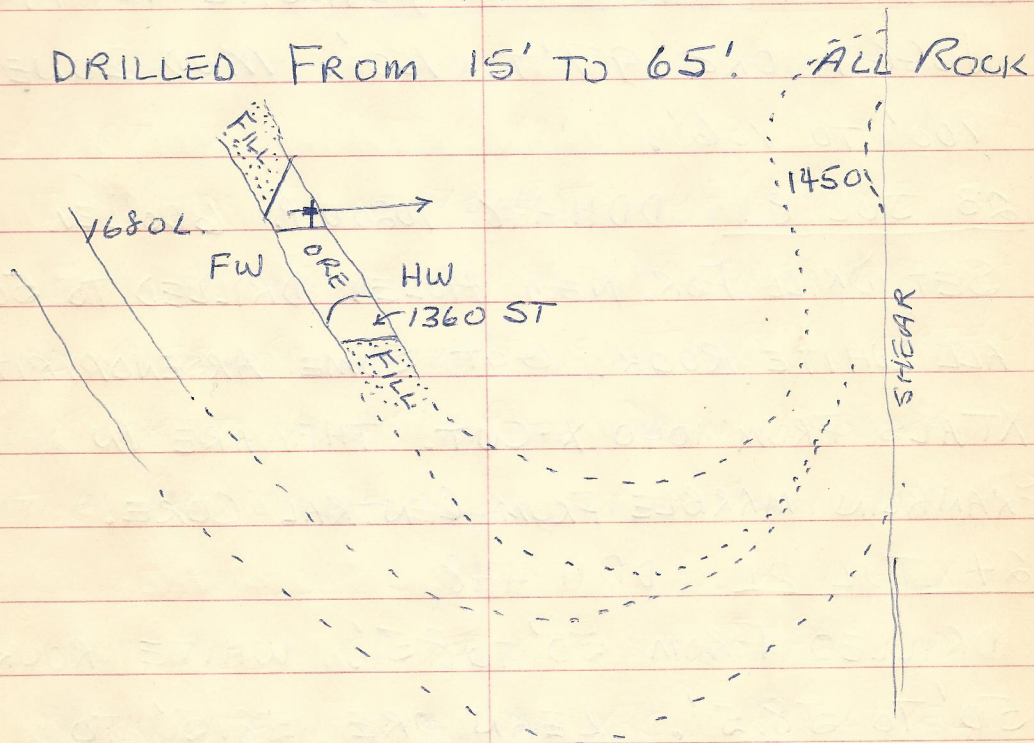 DRILLED FROM 15' TO 65'. ALL ROCK
FILL
1450
1680L.
FW
ORE
HW
1360 ST
SHEAR
FILL